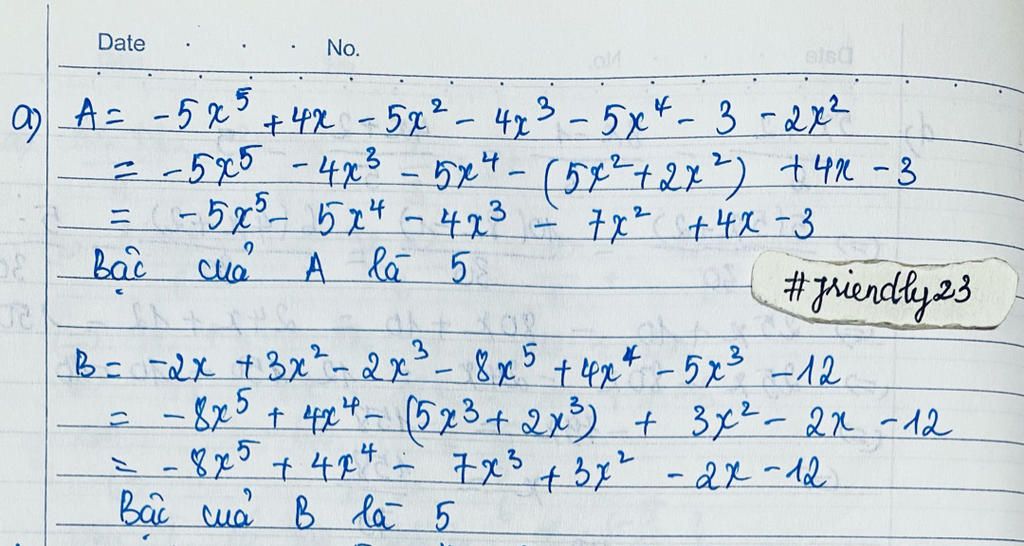 Date . . . No.
a) A = -5x⁵ + 4x - 5x² - 4x³ - 5x⁴ - 3 - 2x²
= -5x⁵ - 4x³ - 5x⁴ - (5x² + 2x²) + 4x - 3
= -5x⁵ - 5x⁴ - 4x³ - 7x² + 4x - 3
Bậc của A là 5
#friendly23
B = -2x + 3x² - 2x³ - 8x⁵ + 4x⁴ - 5x³ - 12
= -8x⁵ + 4x⁴ - (5x³ + 2x³) + 3x² - 2x - 12
= -8x⁵ + 4x⁴ - 7x³ + 3x² - 2x - 12
Bậc của B là 5